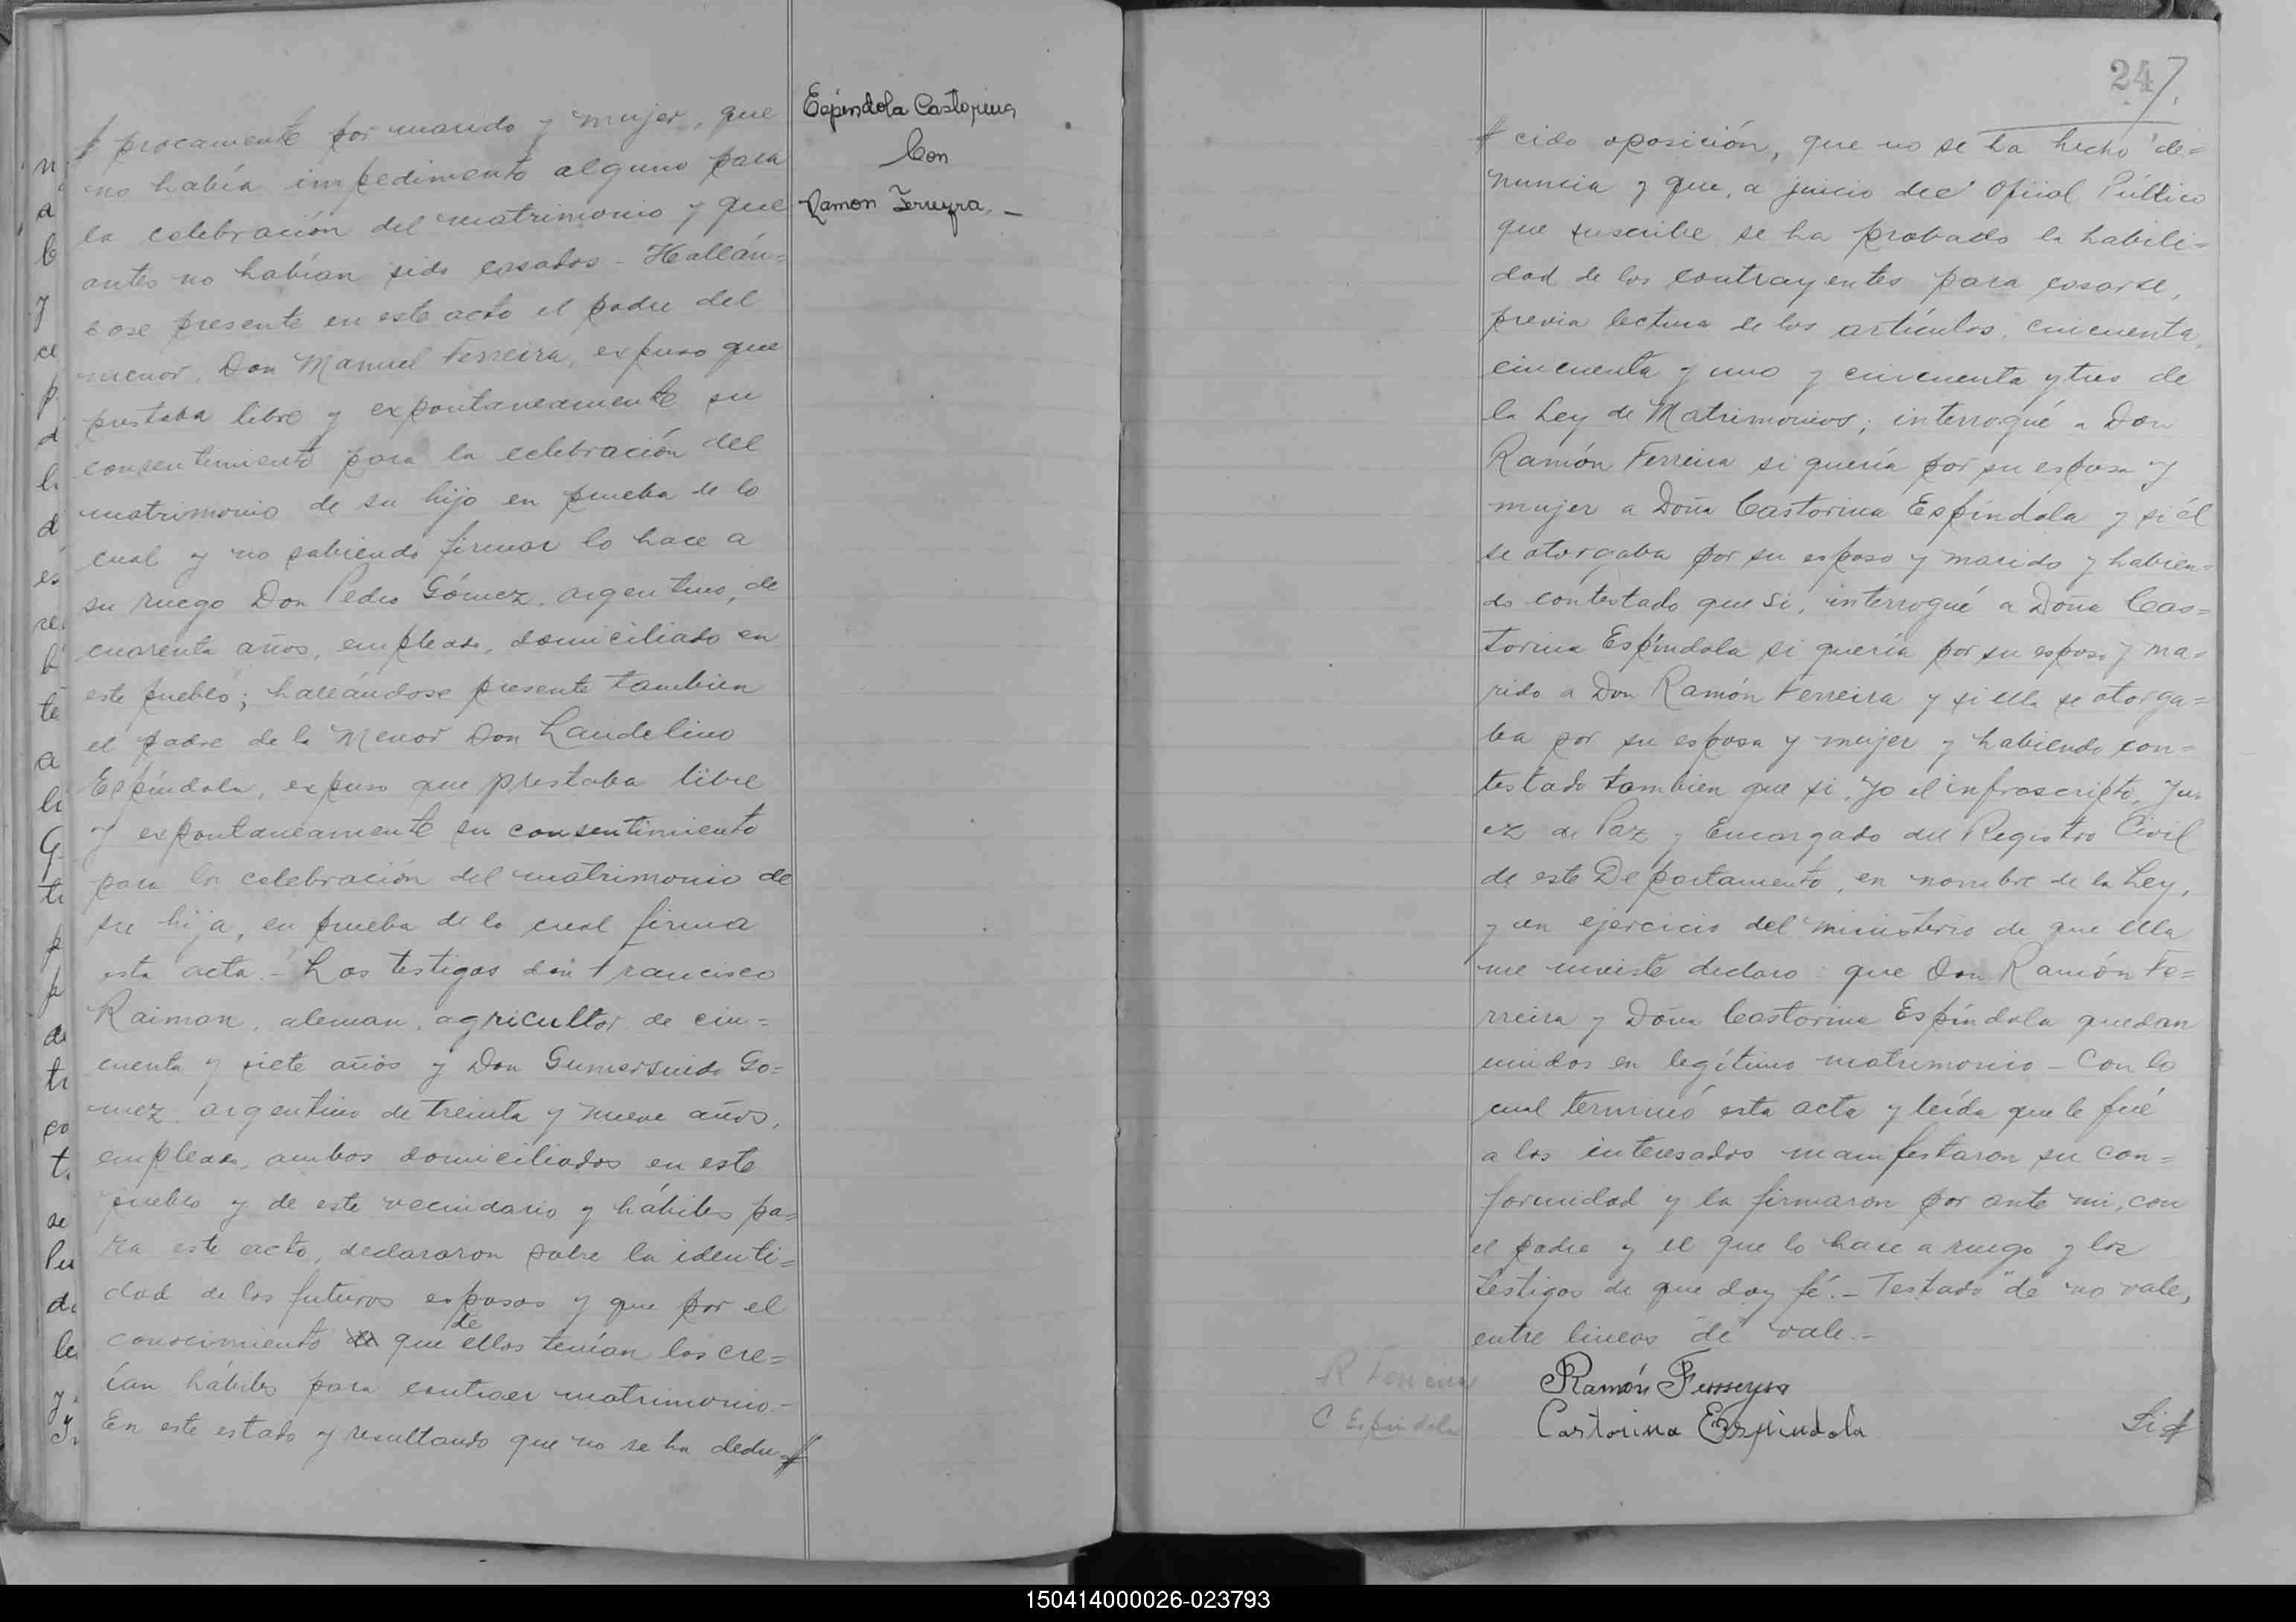 procamente por marido y mujer, que
no había impedimento alguno para
la celebración del matrimonio y que
antes no habían sido casados - Hallán=
dose presente en este acto el padre del
menor, Don Manuel Ferreira, expuso que
prestaba libre y expontaneamente su
consentimiento para la celebración del
matrimonio de su hijo en prueba de lo
cual y no sabiendo firmar lo hace a
su ruego Don Pedro Gómez, argentino, de
cuarenta años, empleado, domiciliado en
este pueblo; hallándose presente tambien
el padre de la Menor Don Laudelino
Espíndola, expuso que prestaba libre
y expontaneamente su consentimiento
para la celebración del matrimonio de
su hija, en prueba de lo cual firma
esta acta.- Los testigos don Francisco
Raiman, aleman, agricultor, de cin=
cuenta y siete años y Don Gumersindo Go=
mez, argentino de treinta y nueve años,
empleado, ambos domiciliados en este
pueblo y de este vecindario y hábiles pa=
ra este acto, declararon sobre la identi=
dad de los futuros esposos y que por el
de
conocimiento que ellos tenían los cre=
ían hábiles para contraer matrimonio.-
En este estado y resultando que no se ha dedu
Espíndola Castorina
Con
Ramon Ferreyra.-
247
cido oposición, que no se ha hecho de=
nuncia y que, a juicio del Ofiial Público
que suscribe se ha probado la habili=
dad de los contrayentes para casarse,
previa lectura de los artículos, cincuenta,
cincuenta y uno y cincuenta y tres de
la Ley de Matrimonios; interrogué a Don
Ramón Ferreira si quería por su esposa y
mujer a Doña Castorina Espíndola y si él
se otorgaba por su esposo y marido y habien=
do contestado que si, interrogué a Doña Cas=
torina Espíndola si quería por su esposo y ma=
rido a Don Ramón Ferreira y si ella se otorga=
ba por su esposa y mujer y habiendo con=
testado tambien que si, Yo el infrascripto, Ju-
ez de Paz y Encargado del Registro Civil
de este Departamento, en nombre de la Ley,
y en ejercicio del ministerio de que ella
me inviste declaro: que Don Ramón Fe=
rreira y Doña Castorina Espíndola quedan
unidos en legítimo matrimonio - Con lo
cual terminó esta acta y leída que le fué
a los interesados manifestaron su con=
formidad y la firmaron por ante mi, con
el padre y el que lo hace a ruego y los
testigos de que doy fé.- Testado "de" no vale,
entre lineas "de" vale.-
R Ferreira
Ramón Ferreyra
C Espindola
Castorina Espindola
Si
150414000026-023793